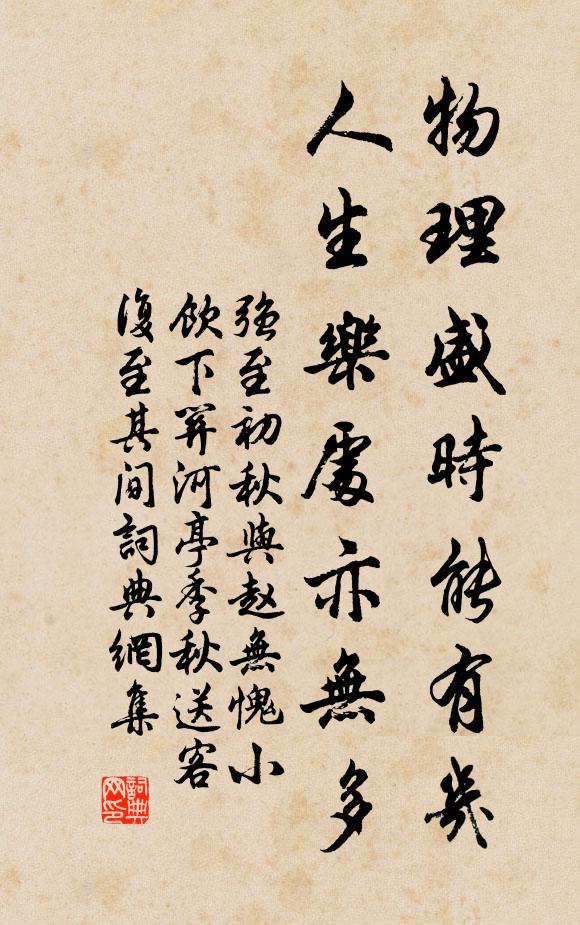 物理盛時能有幾
人生樂處亦無多
強至初秋與赵無愧小
飲下笄河亭季秋送客
復至其間詞典網集
詞典
网印